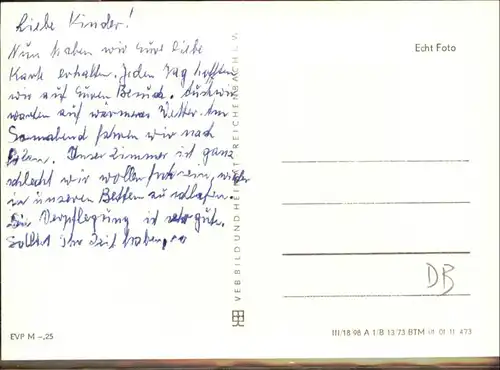 Liebe Kinder!
Nun haben wir Eure liebe
Karte erhalten. Jeden Tag hoffen
wir auf Euren Besuch. Auch wir
warten auf wärmeres Wetter. Am
Sonnabend fahren wir nach
Unser Zimmer ist ganz
schlecht wir wollen froh sein, wieder
in unseren Betten zu schlafen.
Die Verpflegung ist sehr gut.
Solltet ihr Zeit haben,
Echt Foto
VEB BILD UND HEIMAT REICHENBACH I. V.
DB
EVP M –,25
III/18 98 A 1/B 13/73 BTM 01 01 11 473